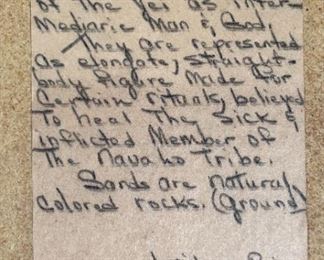 of the Yei as inter-
Mediaric Man & God.
They are represented
as elongate, straight-
body figure Made for
Certain rituals, believed
To heal The Sick &
inflicted Member of
The Navaho Tribe.
Sands are natural
colored rocks. (Ground)